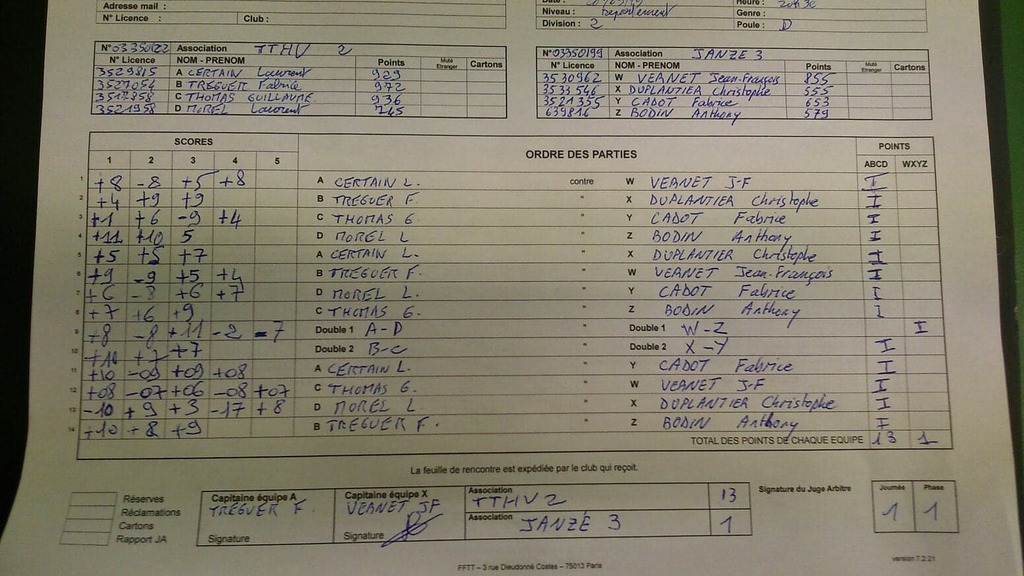 Adresse mail :
N° Licence : Club :
Heure : 20H30
Niveau : Département Genre :
Division : 2 Poule : D
N°03350122 Association TTHV 2
N° Licence NOM - PRENOM Points Muté Etranger Cartons
3529815 A CERTAIN Laurent 929
3527054 B TREGUER Fabrice 972
3512858 C THOMAS GUILLAUME 936
3521958 D MOREL Laurent 745
N°03350199 Association JANZE 3
N° Licence NOM - PRENOM Points Muté Etranger Cartons
3530962 W VERNET Jean-François 855
3533546 X DUPLANTIER Christophe 555
3521335 Y CADOT Fabrice 653
639816 Z BODIN Anthony 579
SCORES ORDRE DES PARTIES POINTS
1 2 3 4 5 ABCD WXYZ
1 +8 -8 +5 +8 A CERTAIN L. contre W VERNET J-F I
2 +4 +9 +9 B TREGUER F. " X DUPLANTIER Christophe I
3 +1 +6 -9 +4 C THOMAS G. " Y CADOT Fabrice I
4 +11 +10 5 D MOREL L " Z BODIN Anthony I
5 +5 +5 +7 A CERTAIN L. " X DUPLANTIER Christophe I
6 +9 -9 +5 +4 B TREGUER F. " W VERNET Jean-François I
7 +6 -8 +6 +7 D MOREL L. " Y CADOT Fabrice I
8 +7 +6 +9 C THOMAS G. " Z BODIN Anthony I
9 +8 -8 +11 -2 -7 Double 1 A-D " Double 1 W-Z I
10 +10 +7 +7 Double 2 B-C " Double 2 X-Y I
11 +10 -09 +09 +08 A CERTAIN L. " Y CADOT Fabrice I
12 +08 -07 +06 -08 +07 C THOMAS G. " W VERNET J-F I
13 -10 +9 +3 -17 +8 D MOREL L. " X DUPLANTIER Christophe I
14 +10 +8 +9 B TREGUER F. " Z BODIN Anthony I
TOTAL DES POINTS DE CHAQUE EQUIPE 13 1
La feuille de rencontre est expédiée par le club qui reçoit.
Réserves
Réclamations
Cartons
Rapport JA
Capitaine équipe A
TREGUER F.
Signature
Capitaine équipe X
VERNET JF
Signature
Association TTHV 2 13
Association JANZÉ 3 1
Signature du Juge Arbitre
Journée Phase
1 1
FFTT – 3 rue Dieudonné Costes – 75013 Paris
version 7.2.21